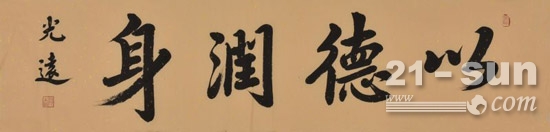 以德潤身
光遠
21-sun
www.                .com